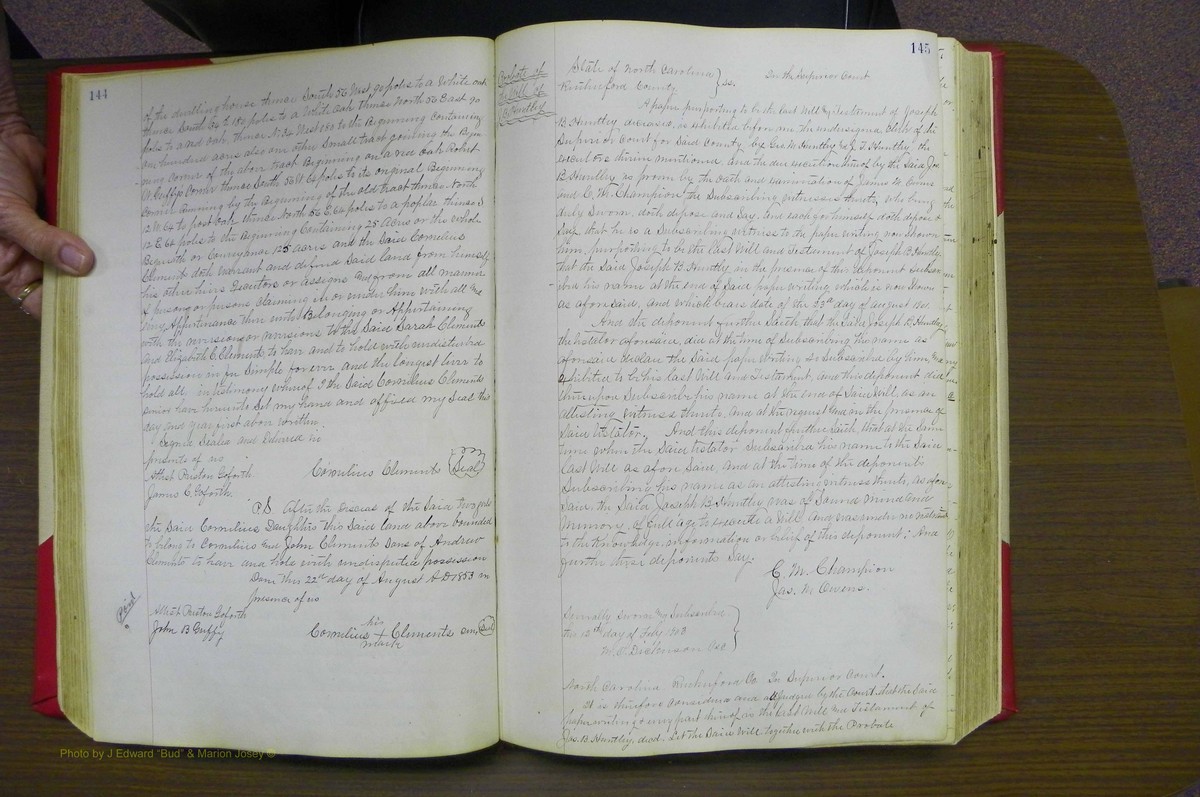 144
of the dwelling house thence South 56 West 90 poles to a White oak
thence South 34 E 180 poles to a White oak thence North 56 East 90
poles to a red oak thence N 34 West 180 to the Beginning Containing
one hundred acres also one other Small tract joining the Begin
ning corner of the above tract Beginning on a red oak Robert
W. Guffys Corner thence South 56 W 64 poles to its original Beginning
corner running by the Beginning of the old tract thence North
12 W. 64 to post oak thence North 56 E 64 poles to a poplar thence S
12 E 64 poles to the Beginning Containing 25 Acres or the whole
Bequeth or Conveyance 125 acres and the Said Cornelius
Clements doth warrant and defend Said land from himself
his other heirs Executors or assigns And from all manner
of person or persons Claiming in or under him with all the
Appertenance then unto Belonging or Appertaining
with the revision or revisions to the Said Sarah Clements
And Elizabeth C Clements, to have and to hold with undisturbed
possession in fee Simple forever and the longest liver to
hold all, in testimony whereof I the Said Cornelius Clements
senior have hereunto Set my hand and affixed my Seal this
day and year first above written.
Signed Sealed and Delivered in
presents of us
Attest Preston Goforth
James C. Goforth.
Cornelius Clements Seal
PS After the decease of the Said two
the Said Cornelius Daughters this Said land above bounded
to belong to Cornelius and John Clements Sons of Andrew
Clements to have and hold with undisputed possession
Done this 22nd day of August A D 1853 in
presence of us
Attest Preston Goforth
John B Guffy
his
Cornelius + Clements sen Seal
mark
145
Probate of
Will of
Huntley
State of North Carolina } ss. In the Superior Court
Rutherford County
A paper purporting to be the last Will & testament of Joseph
B. Huntley, deceased, is exhibited before me, the undersigned, Clerk of the
Superior Court for Said County, by Geo. W. Huntley & J. F. Huntley, the
executors therein mentioned, and the due execution thereof by the Said Jos
B. Huntley is proven by the oath and examination of James M. Owens
and C. M. Champion the Subscribing witnesses thereto, who being
duly Sworn, doth depose and Say, and each for himself doth depose &
Say, that he is a Subscribing witness to the paper writing now Shown
him, purporting to be the last Will and Testament of Joseph B. Huntley
that the Said Joseph B. Huntley, in the presence of this deponent Subscri
bed his name at the end of Said paper writing which is now shown
as aforesaid, and which bears date of the 23rd day of august 1901.
And the deponent further Saith, that the Said Joseph B. Huntley,
the testator aforesaid, did at the time of Subscribing the name as
aforesaid declare the Said paper writing so Subscribed by him, and
exhibited to be his last Will and Testament, and this deponent did
thereupon Subscribe his name at the end of Said Will, as an
attesting witness thereto, and at the request and in the presence of
Said testator. And this deponent further Saith, that at the Same
time when the Said testator Subscribed his name to the Said
last Will as afore Said, and at the time of the deponent's
Subscribing his name as an attesting witness thereto, as afore
Said, the Said Joseph B. Huntley was of Sound mind and
memory, of full age to execute a Will, and was under no restraint
to the knowledge, information or belief of this deponent; And
further these deponents Say.
C. M. Champion
Jas. M. Owens.
Severally Sworn and Subscribed
this 12th day of Feby 1903
M. O. Dickerson CSC
North Carolina Rutherford Co In Superior Court.
It is therefore considered and adjudged by the Court that the Said
paper writing & every part thereof is the last Will and Testament of
Jos. B. Huntley, decd. Let the Said Will, together with the Probate
Photo by J Edward "Bud" & Marion Josey ©